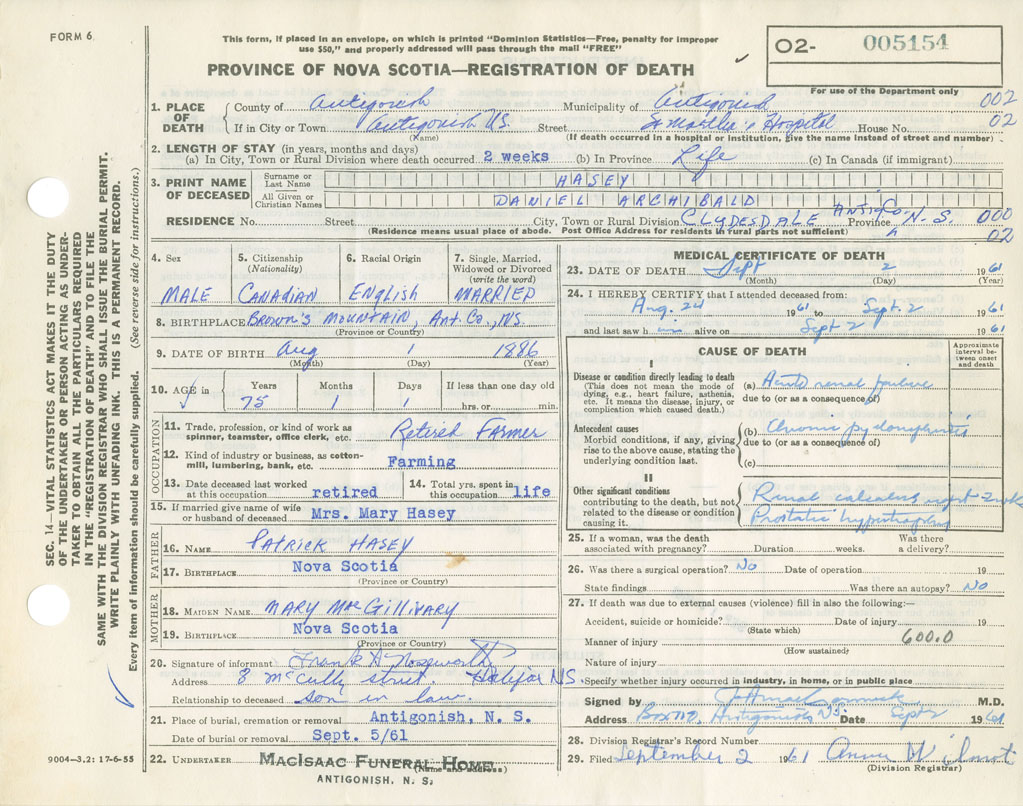 FORM 6
This form, if placed in an envelope, on which is printed "Dominion Statistics—Free, penalty for improper
use $50," and properly addressed will pass through the mail "FREE"
PROVINCE OF NOVA SCOTIA—REGISTRATION OF DEATH
O2- 005154
For use of the Department only
1. PLACE OF DEATH
County of Antigonish Municipality of Antigonish 002
If in City or Town Antigonish N.S. Street St Martha's Hospital House No. 02
(Name) (If death occurred in a hospital or institution, give the name instead of street and number)
2. LENGTH OF STAY (in years, months and days)
(a) In City, Town or Rural Division where death occurred 2 weeks (b) In Province Life (c) In Canada (if immigrant)
3. PRINT NAME OF DECEASED
Surname or Last Name HASEY
All Given or Christian Names DANIEL ARCHIBALD
RESIDENCE No. Street City, Town or Rural Division CLYDESDALE ANTIG. CO. Province N.S. 000
(Residence means usual place of abode. Post Office Address for residents in rural parts not sufficient) 02
4. Sex MALE
5. Citizenship (Nationality) CANADIAN
6. Racial Origin ENGLISH
7. Single, Married, Widowed or Divorced (write the word) MARRIED
8. BIRTHPLACE BROWN'S MOUNTAIN, Ant. Co., N/S
(Province or Country)
9. DATE OF BIRTH Aug 1 1886
(Month) (Day) (Year)
10. AGE in Years Months Days If less than one day old
75 1 1 hrs. or min.
OCCUPATION
11. Trade, profession, or kind of work as spinner, teamster, office clerk, etc. Retired Farmer
12. Kind of industry or business, as cotton-mill, lumbering, bank, etc. Farming
13. Date deceased last worked at this occupation retired
14. Total yrs. spent in this occupation life
15. If married give name of wife or husband of deceased Mrs. Mary Hasey
FATHER
16. NAME PATRICK HASEY
17. BIRTHPLACE Nova Scotia
(Province or Country)
MOTHER
18. MAIDEN NAME MARY MacGILLIVARY
19. BIRTHPLACE Nova Scotia
(Province or Country)
20. Signature of informant Frank A Nosworthy
Address 8 McCully street. Halifax NS.
Relationship to deceased son in law.
21. Place of burial, cremation or removal Antigonish, N. S.
Date of burial or removal Sept. 5/61
22. UNDERTAKER MACISAAC FUNERAL HOME
(Name and address)
ANTIGONISH, N. S.
MEDICAL CERTIFICATE OF DEATH
23. DATE OF DEATH Sept 2 1961
(Month) (Day) (Year)
24. I HEREBY CERTIFY that I attended deceased from:
Aug. 24 1961 to Sept. 2 1961
and last saw him alive on Sept 2 1961
CAUSE OF DEATH
Approximate interval between onset and death
I
Disease or condition directly leading to death
(This does not mean the mode of dying, e.g., heart failure, asthenia, etc. It means the disease, injury, or complication which caused death.)
(a) Acute renal failure
due to (or as a consequence of)
Antecedent causes
Morbid conditions, if any, giving rise to the above cause, stating the underlying condition last.
(b) Chronic pyelonephritis
due to (or as a consequence of)
(c)
II
Other significant conditions
contributing to the death, but not related to the disease or condition causing it.
Renal calculus right
Prostatic hypertrophy
25. If a woman, was the death associated with pregnancy? Duration weeks. Was there a delivery?
26. Was there a surgical operation? No Date of operation 19
State findings Was there an autopsy? No
27. If death was due to external causes (violence) fill in also the following:—
Accident, suicide or homicide? Date of injury 19
(State which)
Manner of injury 600.0
(How sustained)
Nature of injury
Specify whether injury occurred in industry, in home, or in public place
Signed by M.D.
Address Antigonish N.S. Date Sept 2 1961
28. Division Registrar's Record Number
29. Filed September 2 1961 Anna
(Division Registrar)
SEC. 14—VITAL STATISTICS ACT MAKES IT THE DUTY
OF THE UNDERTAKER OR PERSON ACTING AS UNDER-
TAKER TO OBTAIN ALL THE PARTICULARS REQUIRED
IN THE "REGISTRATION OF DEATH" AND TO FILE THE
SAME WITH THE DIVISION REGISTRAR WHO SHALL ISSUE THE BURIAL PERMIT.
WRITE PLAINLY WITH UNFADING INK. THIS IS A PERMANENT RECORD.
Every item of information should be carefully supplied. (See reverse side for instructions.)
9004—3,2: 17-6-55